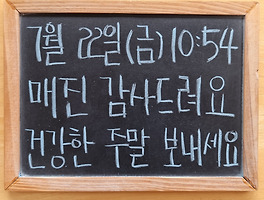 7월 22일(금)10:54
매진 감사드려요
건강한 주말 보내세요